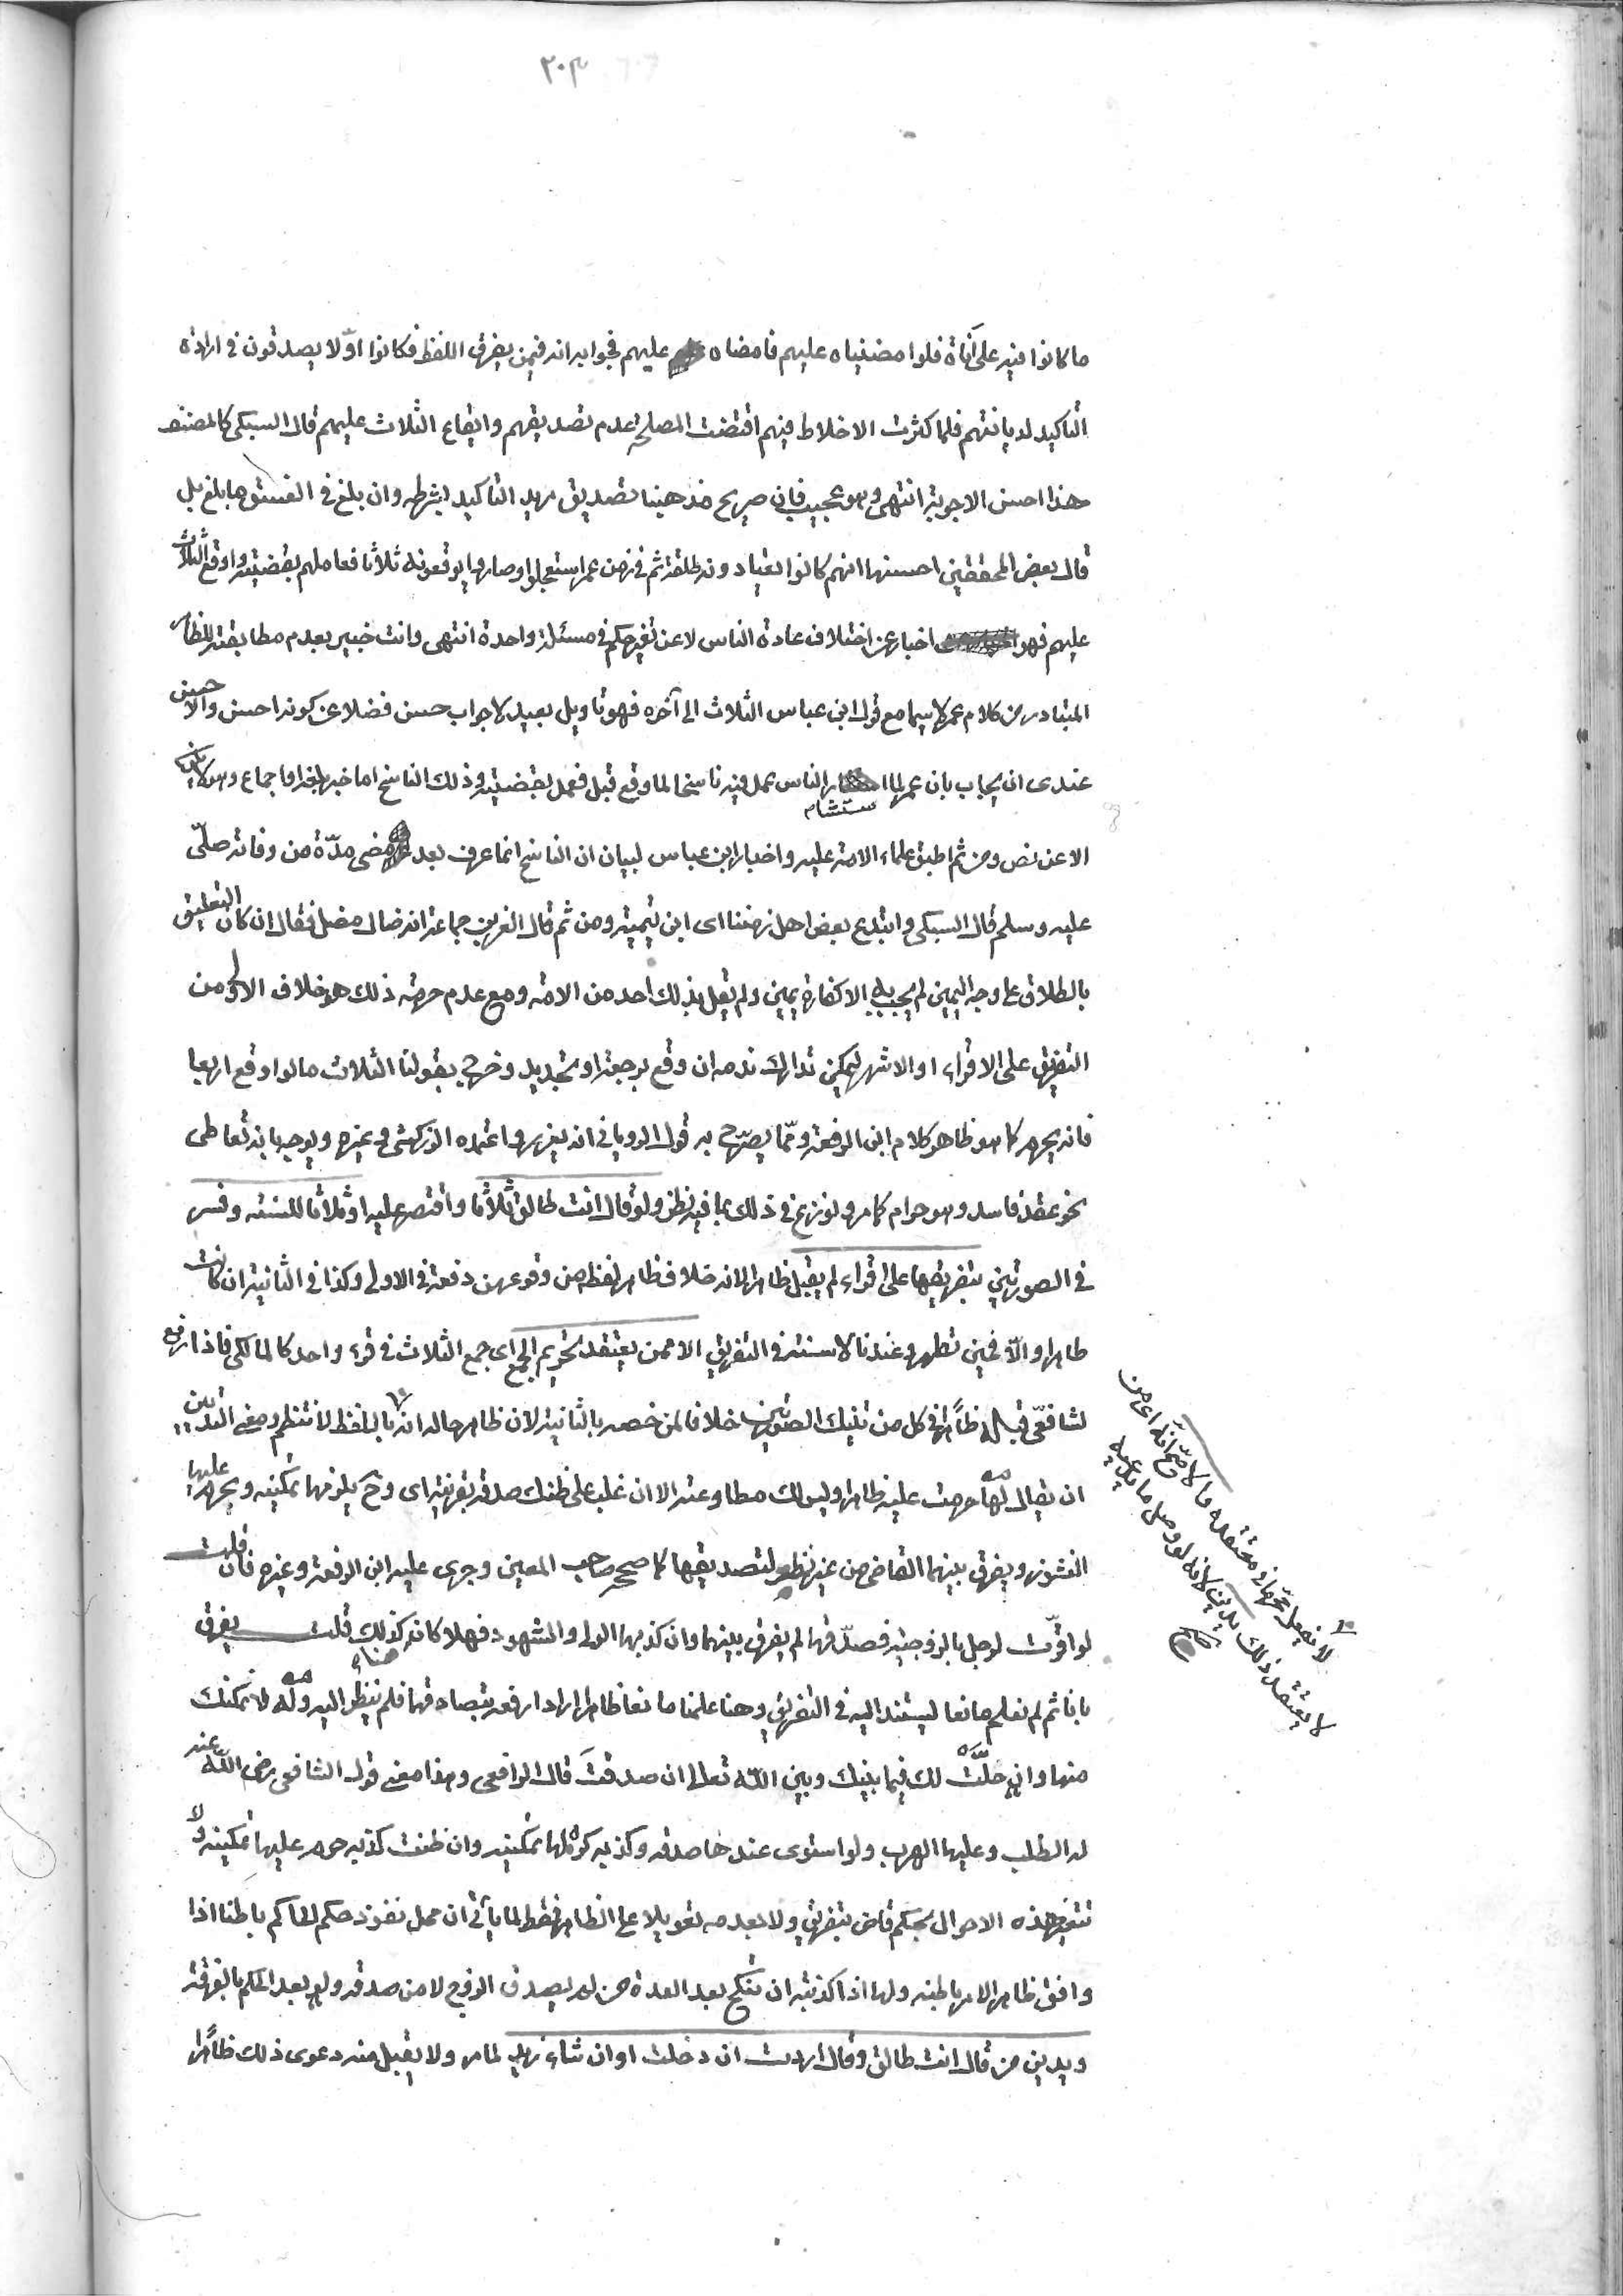 ٢٠٣
ما كانوا فيه على أناة فلوا مضيناه عليهم فامضاه عليهم فجوابه انه فيمن يفرق اللفظ فكانوا اوّلا يصدقون في ارادة
التاكيد لديانتهم فلما كثرت الاخلاط فيهم اقتضت المصلحة عدم تصديقهم وايقاع الثلاث عليهم قال السبكي كالمصنف
هذا احسن الاجوبة انتهى وهو عجيب فان صريح مذهبنا تصديق مريد التاكيد بشرطه وان بلغ في الفسق ما بلغ بل
قال بعض المحققين احسنها انهم كانوا يعتادونه طلقة ثم في زمن عمر استعجلوا وصاروا يوقعونه ثلاثا فعاملهم بقضيته واوقع الثلاث
عليهم فهو اخبار عن اختلاف عادة الناس لا عن تغير حكم في مسئلة واحدة انتهى وانت خبير بعدم مطابقته للظاهر
المتبادر من كلام عمر لا سيما مع قول ابن عباس الثلاث الى آخره فهو تاويل بعيد لا جواب حسن فضلا عن كونه احسن والاحسن
عندي ان يجاب بان عمر لما استشار الناس علم فيه ناسخا لما وقع قبل فعمل بقضيته وذلك الناسخ اما خبر بلغه او اجماع وهو لا يكون
الا عن نص ومن ثم اطبق علماء الامة عليه واخبار ابن عباس لبيان ان الناسخ انما عرف بعد مضي مدّة من وفاته صلّى
عليه وسلم قال السبكي وابتدع بعض اهل زمننا اى ابن تيمية ومن ثم قال العز بن جماعة انه ضال مضل فقال ان كان التعليق
بالطلاق على وجه اليمين لم يجب به الا كفارة يمين ولم يقل بذلك احد من الامة ومع عدم حرمة ذلك هو خلاف الاولى من
التفريق على الاقراء او الاشهر ليمكن تدارك ندمه ان وقع برجعة او تجديد وخرج بقولنا الثلاث ما لو اوقع اربعا
فانه يحرم كما هو ظاهر كلام ابن الرفعة وممّا يصرّح به قول الروياني انه يعزر واعتمده الزركشي وغيره ويوجه بانه تعاطى
نحو عقد فاسد وهو حرام كما مر ولو نزع في ذلك بما فيه نظر ولو قال انت طالق ثلاثا واقتصر عليه او ثلاثا للسنة وفسر
في الصورتين بتفريقها على اقراء لم يقبل ظاهرا لانه خلاف ظاهر لفظه من وقوعهن دفعة في الاولى وكذا في الثانية ان كانت
طاهرا والّا فحين تطهر وعندنا لا سنة في التفريق الا ممن يعتقد تحريم الجمع اى جمع الثلاث في قرء واحد كالمالكي فاذا رفع
لشافعيّ قبله ظاهرا في كل من تينك الصورتين خلافا لمن خصه بالثانية لان ظاهر حاله انه باللفظ لا تنتظم ومعنى التديين
ان يقال لها حرمت عليه ظاهرا وليس لك مطاوعته الا ان غلب على ظنك صدقه بقرينة اى وح يلزمها تمكينه ويحرم عليها
النشوز ويفرق بينهما القاضي من غير نظر لتصديقها كما صححه صاحب المعين وجرى عليه ابن الرفعة وغيره فان قلت
لو اقرّت لرجل بالزوجية فصدّقها لم يفرق بينهما وان كذبها الولي والشهود فهلا كان هنا كذلك قلت يفرق
بانا ثم لم نعلم مانعا ليستند اليه في التفريق وهنا علمنا مانعا ظاهرا اراد ارفعه بتصادقهما فلم ينظر اليه وله لا نمكنك
منها وان حلّت لك فيما بينك وبين اللّه تعالى ان صدقت قال الرافعي وهذا معنى قول الشافعي رضى اللّه عنه
له الطلب وعليها الهرب ولو استوى عندها صدقه وكذبه كره لها تمكينه وان ظنت كذبه حرم عليها تمكينه ولا
تتغير هذه الاحوال بحكم قاض بتفريق ولا بعدمه تعويلا على الظاهر فقط لما ياتي ان محل نفوذ حكم الحاكم باطنا اذا
وافق ظاهر الامر باطنه ولها اذا كذبته ان تنكح بعد العدة من لم يصدق الزوج لا من صدقه ولو بعد الحكم بالفرقة
ويدين من قال انت طالق وقال اردت ان دخلت او ان شاء زيد لما مر ولا يقبل منه دعوى ذلك ظاهرا
لا يفعل محرّما في معتقده والاصحّ انه اى من
لا يعتقد ذلك يدين لانه لو وصل ما يدعيه
صح